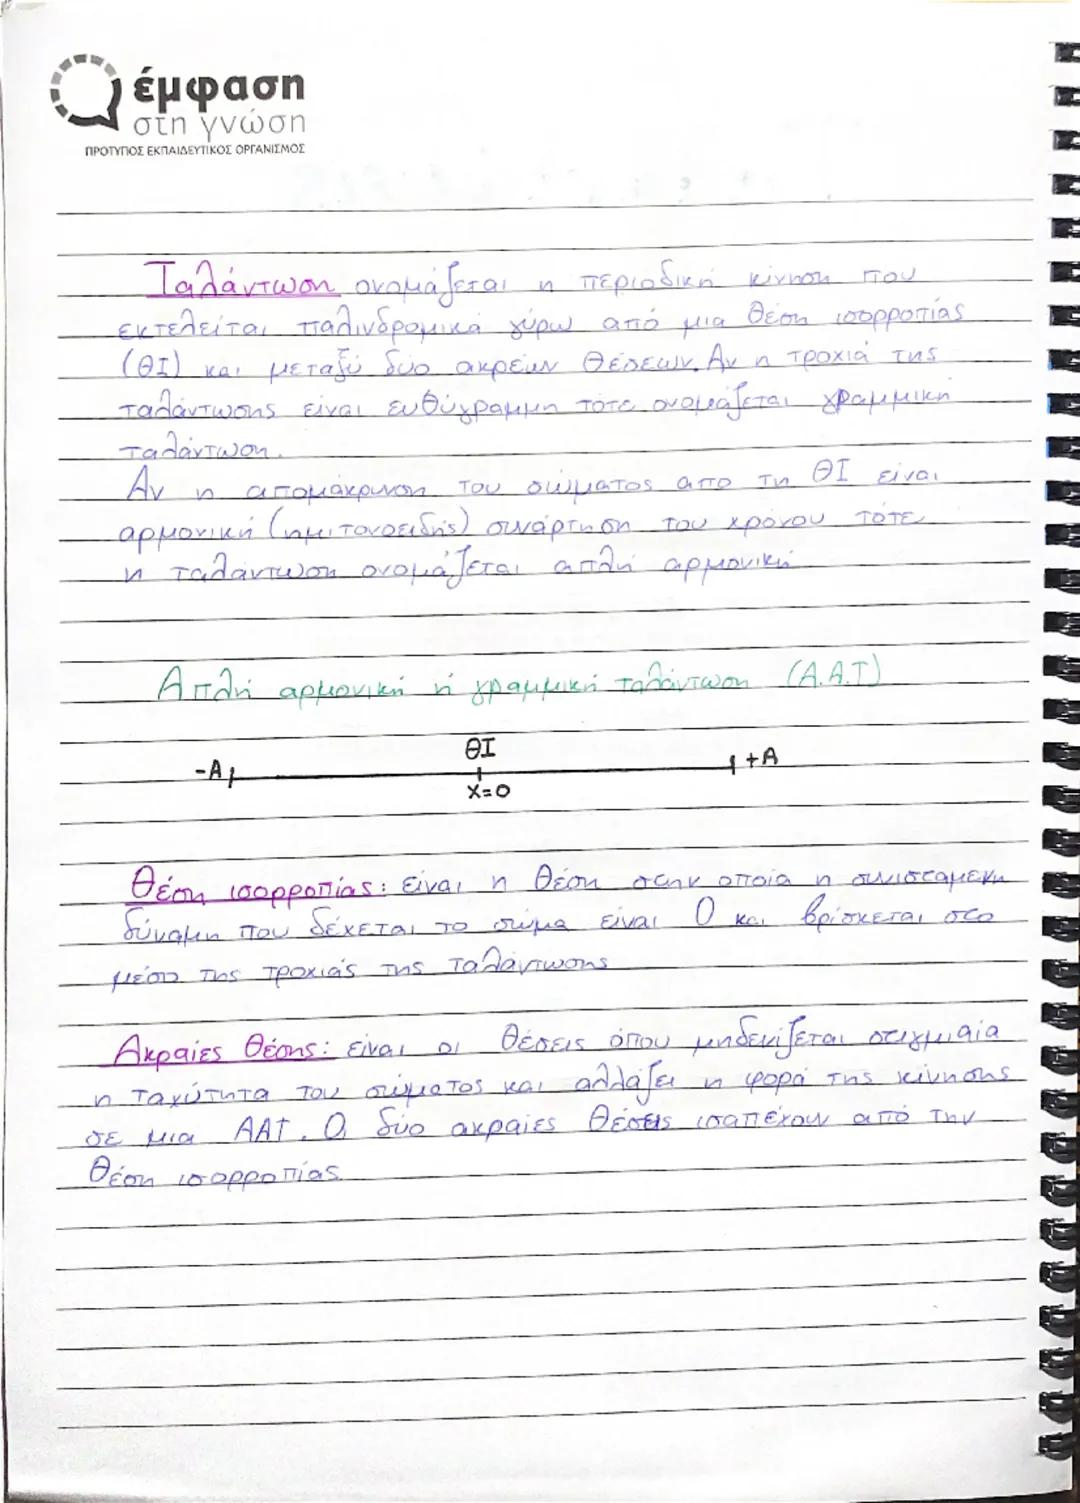 έμφαση
στη γνώση
ΠΡΟΤΥΠΟΣ ΕΚΠΑΙΔΕΥΤΙΚΟΣ ΟΡΓΑΝΙΣΜΟΣ
Ταλάντωση ονομάζεται η περιοδική κίνηση που
εκτελείται παλινδρομικά γύρω από μια θέση ισορροπίας
(ΘΙ) και μεταξύ δύο ακρείων θέσεων. Αν η τροχιά της
ταλάντωσης είναι ευθύγραμμη τότε ονομάζεται γραμμική
ταλάντωση.
Αν η απομάκρυνση του σώματος απο τη ΘΙ είναι
αρμονική (ημιτονοειδής) συνάρτηση του χρόνου τότε
η ταλάντωση ονομάζεται απλή αρμονική
Απλή αρμονική ή γραμμική ταλάντωση (Α.Α.Τ)
-Α ΘΙ +Α
x=0
Θέση ισορροπίας: είναι η θέση στην οποία η συνισταμένη
δύναμη που δέχεται το σώμα είναι 0 και βρίσκεται στο
μέσο της τροχιάς της ταλάντωσης
Ακραίες θέσης: είναι οι θέσεις όπου μηδενίζεται στιγμιαία
η ταχύτητα του σώματος και αλλάζει η φορά της κίνησης
σε μια ΑΑΤ. Οι δύο ακραίες θέσεις ισαπέχουν από την
θέση ισορροπίας.